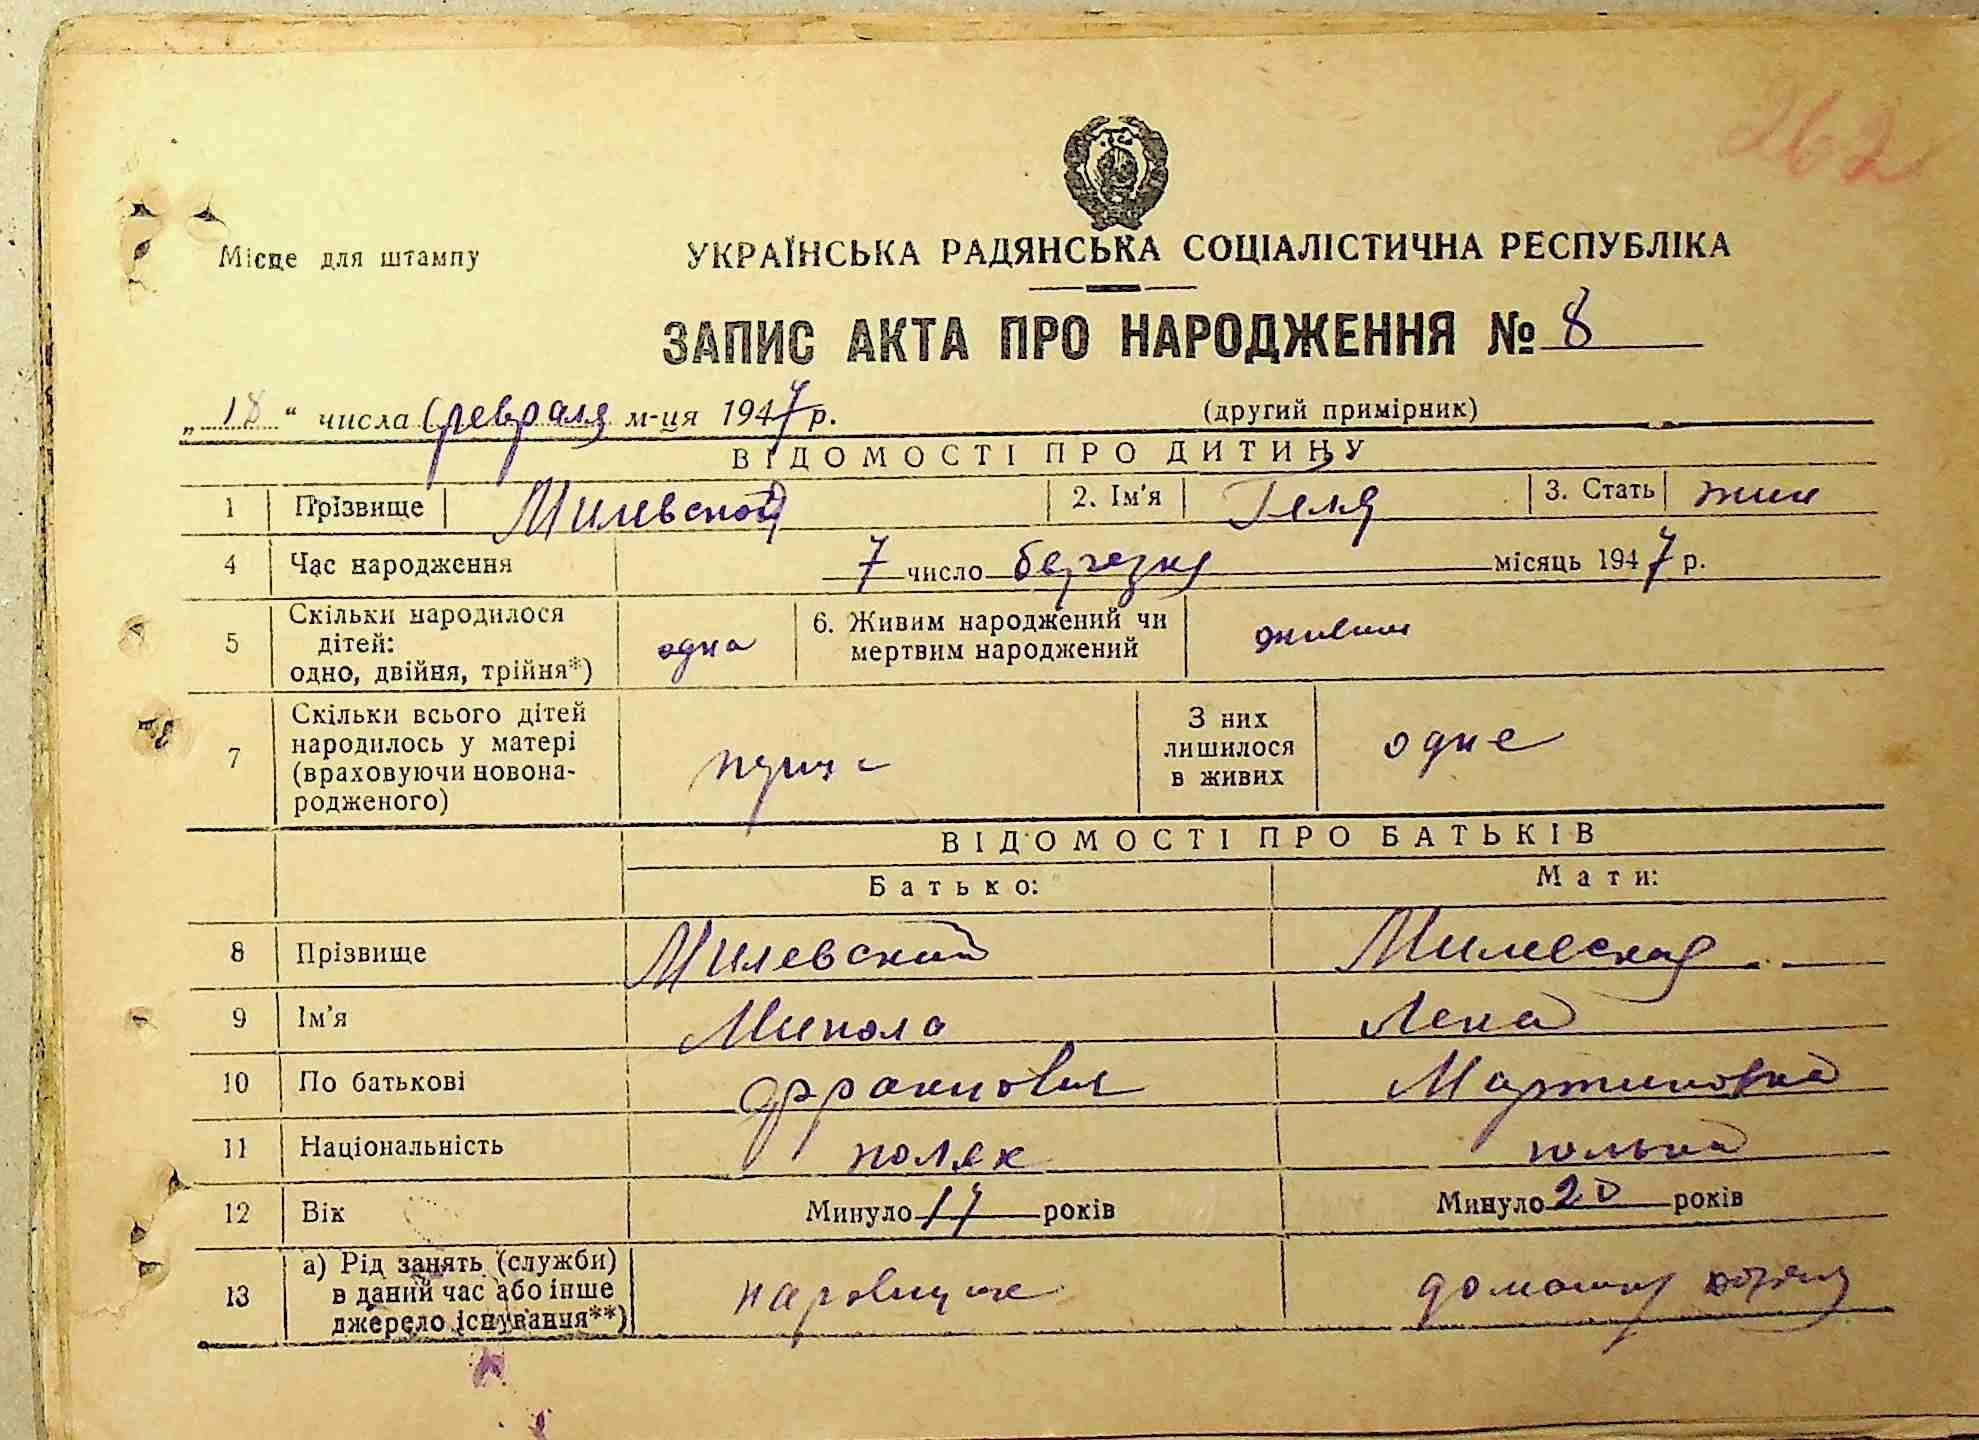 262
Місце для штампу
УКРАЇНСЬКА РАДЯНСЬКА СОЦІАЛІСТИЧНА РЕСПУБЛІКА
ЗАПИС АКТА ПРО НАРОДЖЕННЯ № 8
„18“ числа февраля м-ця 1947 р. (другий примірник)
ВІДОМОСТІ ПРО ДИТИНУ
1 Прізвище Милевской 2. Ім'я Геля 3. Стать жин
4 Час народження 7 число березня місяць 1947 р.
5 Скільки народилося дітей: одно, двійня, трійня*) одна 6. Живим народжений чи мертвим народжений живим
7 Скільки всього дітей народилось у матері (враховуючи новонародженого) З них лишилося в живих одне
ВІДОМОСТІ ПРО БАТЬКІВ
Батько: Мати:
8 Прізвище Милевский Милевская
9 Ім'я Микола Лена
10 По батькові Мартиновна
11 Національність поляк полька
12 Вік Минуло 17 років Минуло 20 років
13 а) Рід занять (служби) в даний час або інше джерело існування**)